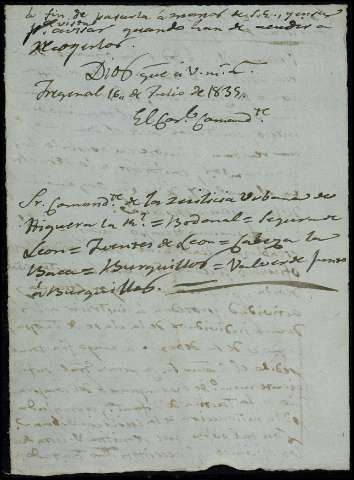 a fin de pasarla a manos de S.E., y en su
vista avisar quando han de acudir a
recogerlos.
Dios gue a V. m.s a.s
Fregenal 16,, de Julio de 1835,,
El Cor.l Comand.te
Sr. Comand.te de los Milicia Urbana de
Higuera la R.l = Bodonal = Segura de
Leon = Fuentes de Leon = Cabeza la
Baca = Burguillos = Valverde
á Burguillos.